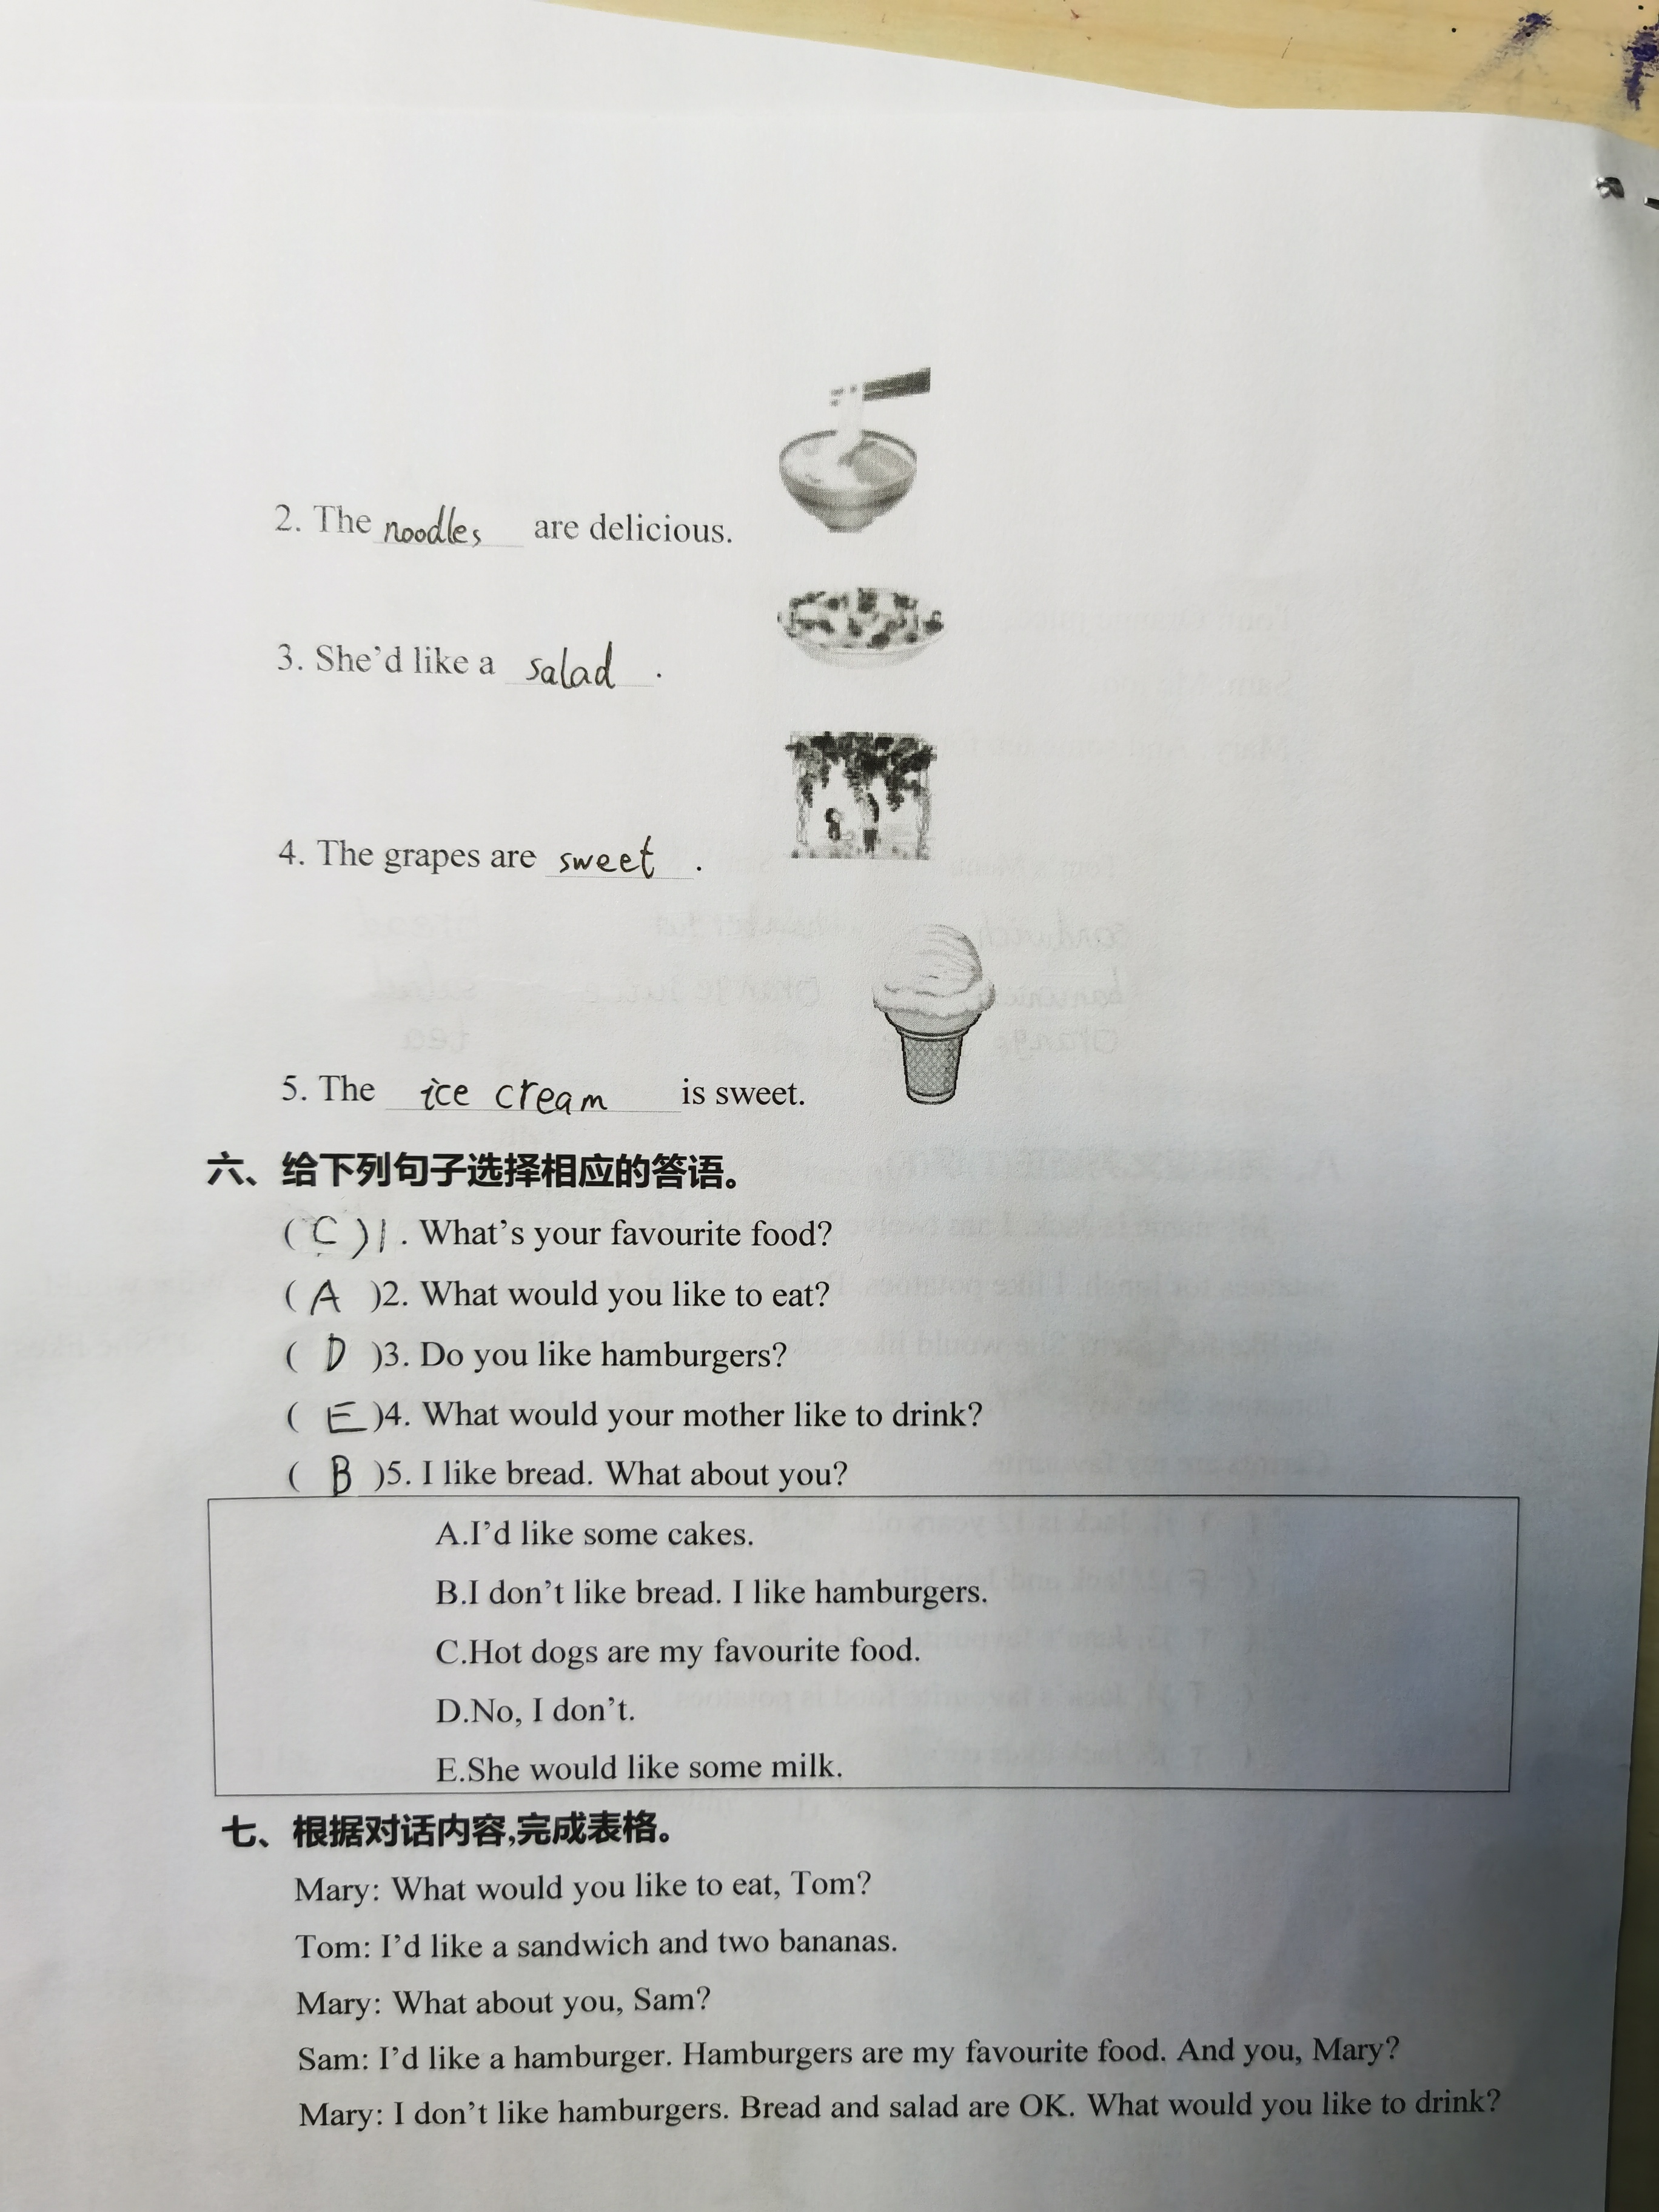 2. The noodles are delicious.
3. She'd like a salad .
4. The grapes are sweet .
5. The ice cream is sweet.
六、给下列句子选择相应的答语。
( C )1. What's your favourite food?
( A )2. What would you like to eat?
( D )3. Do you like hamburgers?
( E )4. What would your mother like to drink?
( B )5. I like bread. What about you?
A.I'd like some cakes.
B.I don't like bread. I like hamburgers.
C.Hot dogs are my favourite food.
D.No, I don't.
E.She would like some milk.
七、根据对话内容,完成表格。
Mary: What would you like to eat, Tom?
Tom: I'd like a sandwich and two bananas.
Mary: What about you, Sam?
Sam: I'd like a hamburger. Hamburgers are my favourite food. And you, Mary?
Mary: I don't like hamburgers. Bread and salad are OK. What would you like to drink?